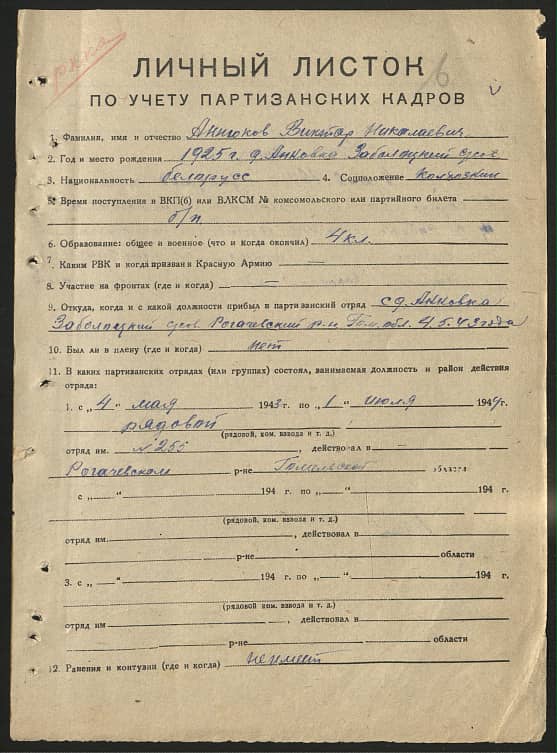 РККА
ЛИЧНЫЙ ЛИСТОК
ПО УЧЕТУ ПАРТИЗАНСКИХ КАДРОВ
1. Фамилия, имя и отчество Виктор Николаевич
2. Год и место рождения 1925 г. д. Анновка Заболоцкий
3. Национальность белорусс 4. Соцположение
5. Время поступления в ВКП(б) или ВЛКСМ № комсомольского или партийного билета
б/п
6. Образование: общее и военное (что и когда окончил) 4 кл.
7. Каким РВК и когда призван в Красную Армию —
8. Участие на фронтах (где и когда) —
9. Откуда, когда и с какой должности прибыл в партизанский отряд с д. Анновка
Заболоцкий Рогачевский р-н Гом. обл. 4.5.43 года
10. Был ли в плену (где и когда) нет
11. В каких партизанских отрядах (или группах) состоял, занимаемая должность и район действия
отряда:
1. с „4“ мая 1943 г. по „1“ июля 1944 г.
рядовой
(рядовой, ком. взвода и т. д.)
отряд им. №255, действовал в
Рогачевском р-не Гомельской области
с „ “ 194 г. по „ “ 194 г.
(рядовой, ком. взвода и т. д.)
отряд им. , действовал в
р-не области
3. с „ “ 194 г. по „ “ 194 г.
(рядовой, ком. взвода и т. д.)
отряд им , действовал в
р-не области
12. Ранения и контузии (где и когда) не имеет